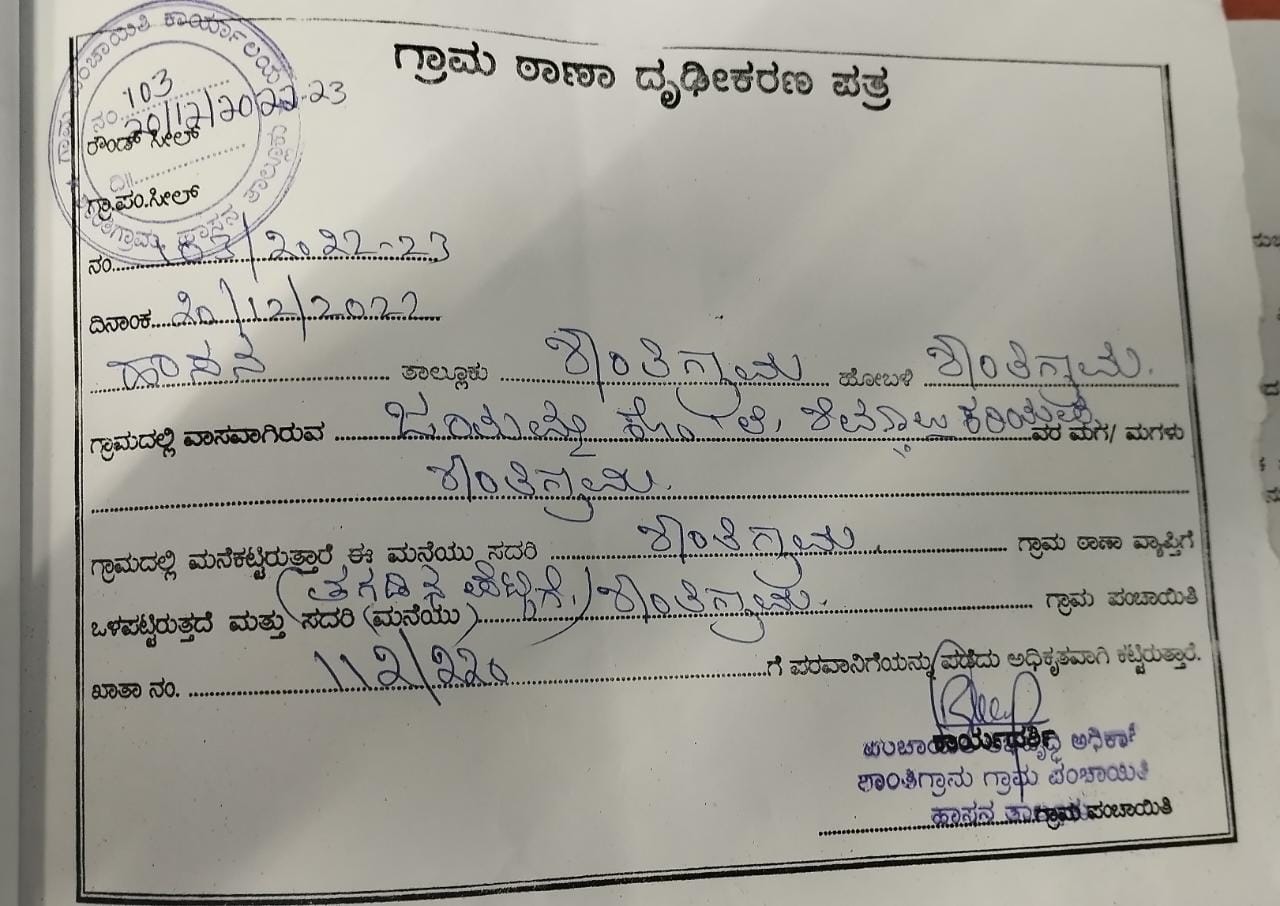 ಗ್ರಾಮ ಠಾಣಾ ದೃಢೀಕರಣ ಪತ್ರ
ಗ್ರಾಮ ಪಂಚಾಯಿತಿ ಕಾರ್ಯಾಲಯ
ನಂ. 103
20/12/2022-23
ರೌಂಡ್ ಸೀಲ್
ದಿ||
ಗ್ರಾ.ಪಂ.ಸೀಲ್
ಹಾಸನ ತಾಲ್ಲೂಕು
ನಂ. 103/2022-23
ದಿನಾಂಕ 20/12/2022
ಹಾಸನ ತಾಲ್ಲೂಕು ಶಾಂತಿಗ್ರಾಮ ಹೋಬಳಿ ಶಾಂತಿಗ್ರಾಮ.
ಗ್ರಾಮದಲ್ಲಿ ವಾಸವಾಗಿರುವ ವರ ಮಗ/ ಮಗಳು
ಶಾಂತಿಗ್ರಾಮ.
ಗ್ರಾಮದಲ್ಲಿ ಮನೆಕಟ್ಟಿರುತ್ತಾರೆ ಈ ಮನೆಯು ಸದರಿ ಶಾಂತಿಗ್ರಾಮ ಗ್ರಾಮ ಠಾಣಾ ವ್ಯಾಪ್ತಿಗೆ
ಒಳಪಟ್ಟಿರುತ್ತದೆ ಮತ್ತು ಸದರಿ (ಮನೆಯು) ಶಾಂತಿಗ್ರಾಮ. ಗ್ರಾಮ ಪಂಚಾಯಿತಿ
ಖಾತಾ ನಂ. 112/220 ಗೆ ಪರವಾನಿಗೆಯನ್ನು ಪಡೆದು ಅಧಿಕೃತವಾಗಿ ಕಟ್ಟಿರುತ್ತಾರೆ.
ಕಾರ್ಯದರ್ಶಿ
ಶಾಂತಿಗ್ರಾಮ ಗ್ರಾಮ ಪಂಚಾಯಿತಿ
ಹಾಸನ
ಗ್ರಾಮ ಪಂಚಾಯಿತಿ